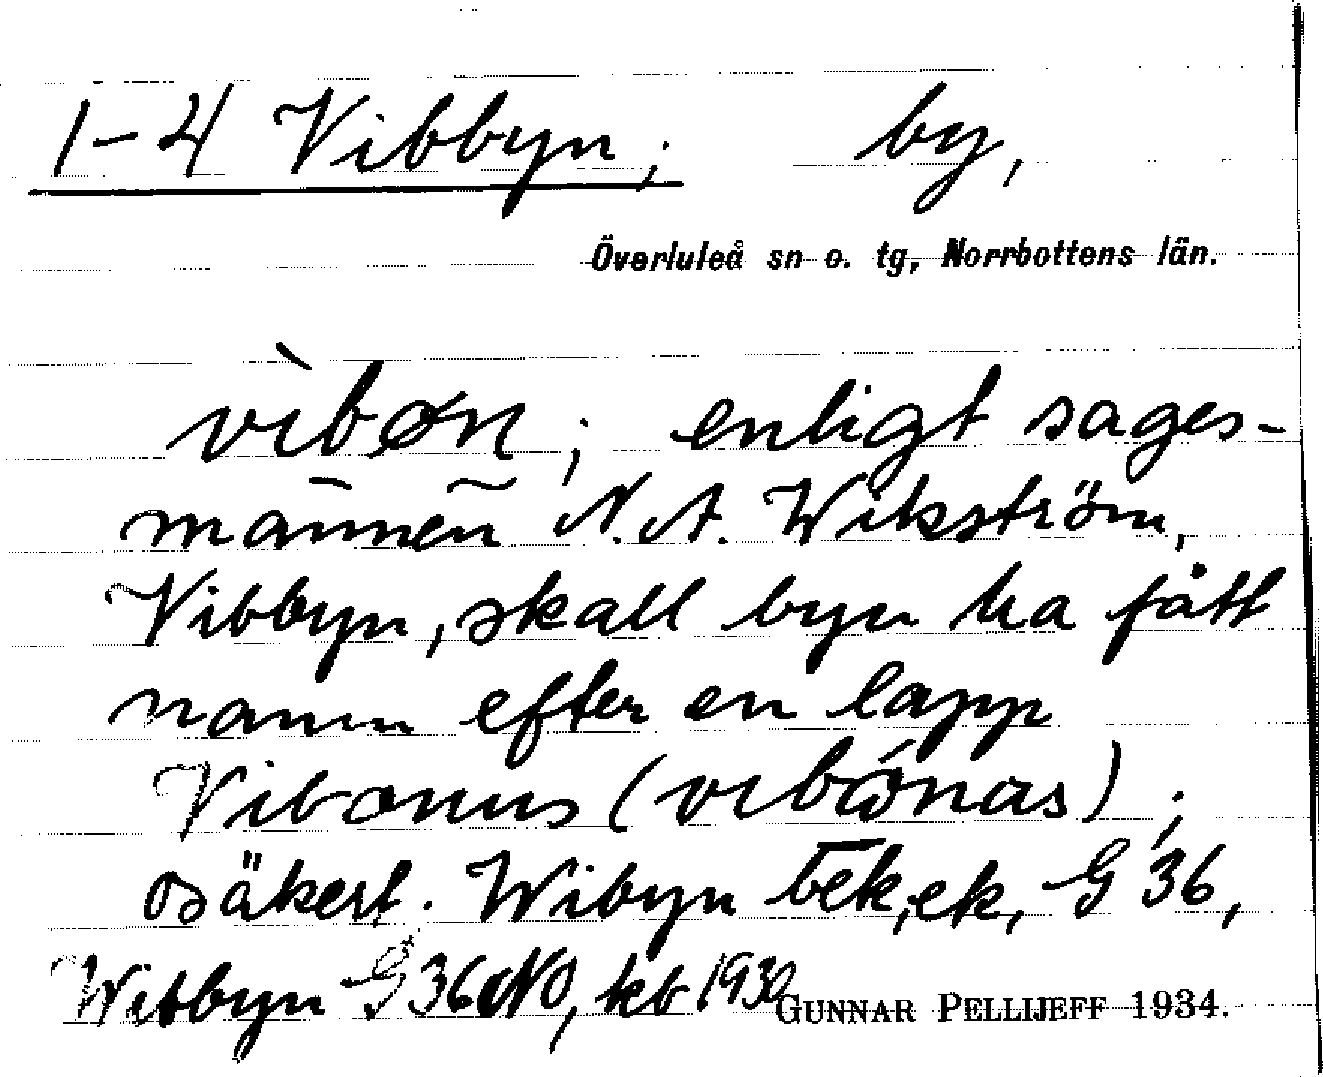 1-4 Vibbyn; by,
Överluleå sn o. tg, Norrbottens län.
vìbøn; enligt sages-
mannen N. A. Wikström,
Vibbyn, skall byn ha fått
namn efter en lapp
Vibonus (vibónas);
osäkert. Wibyn tek, ek, G 36,
Wibbyn G 36 NO, kb 1930
GUNNAR PELLIJEFF 1934.